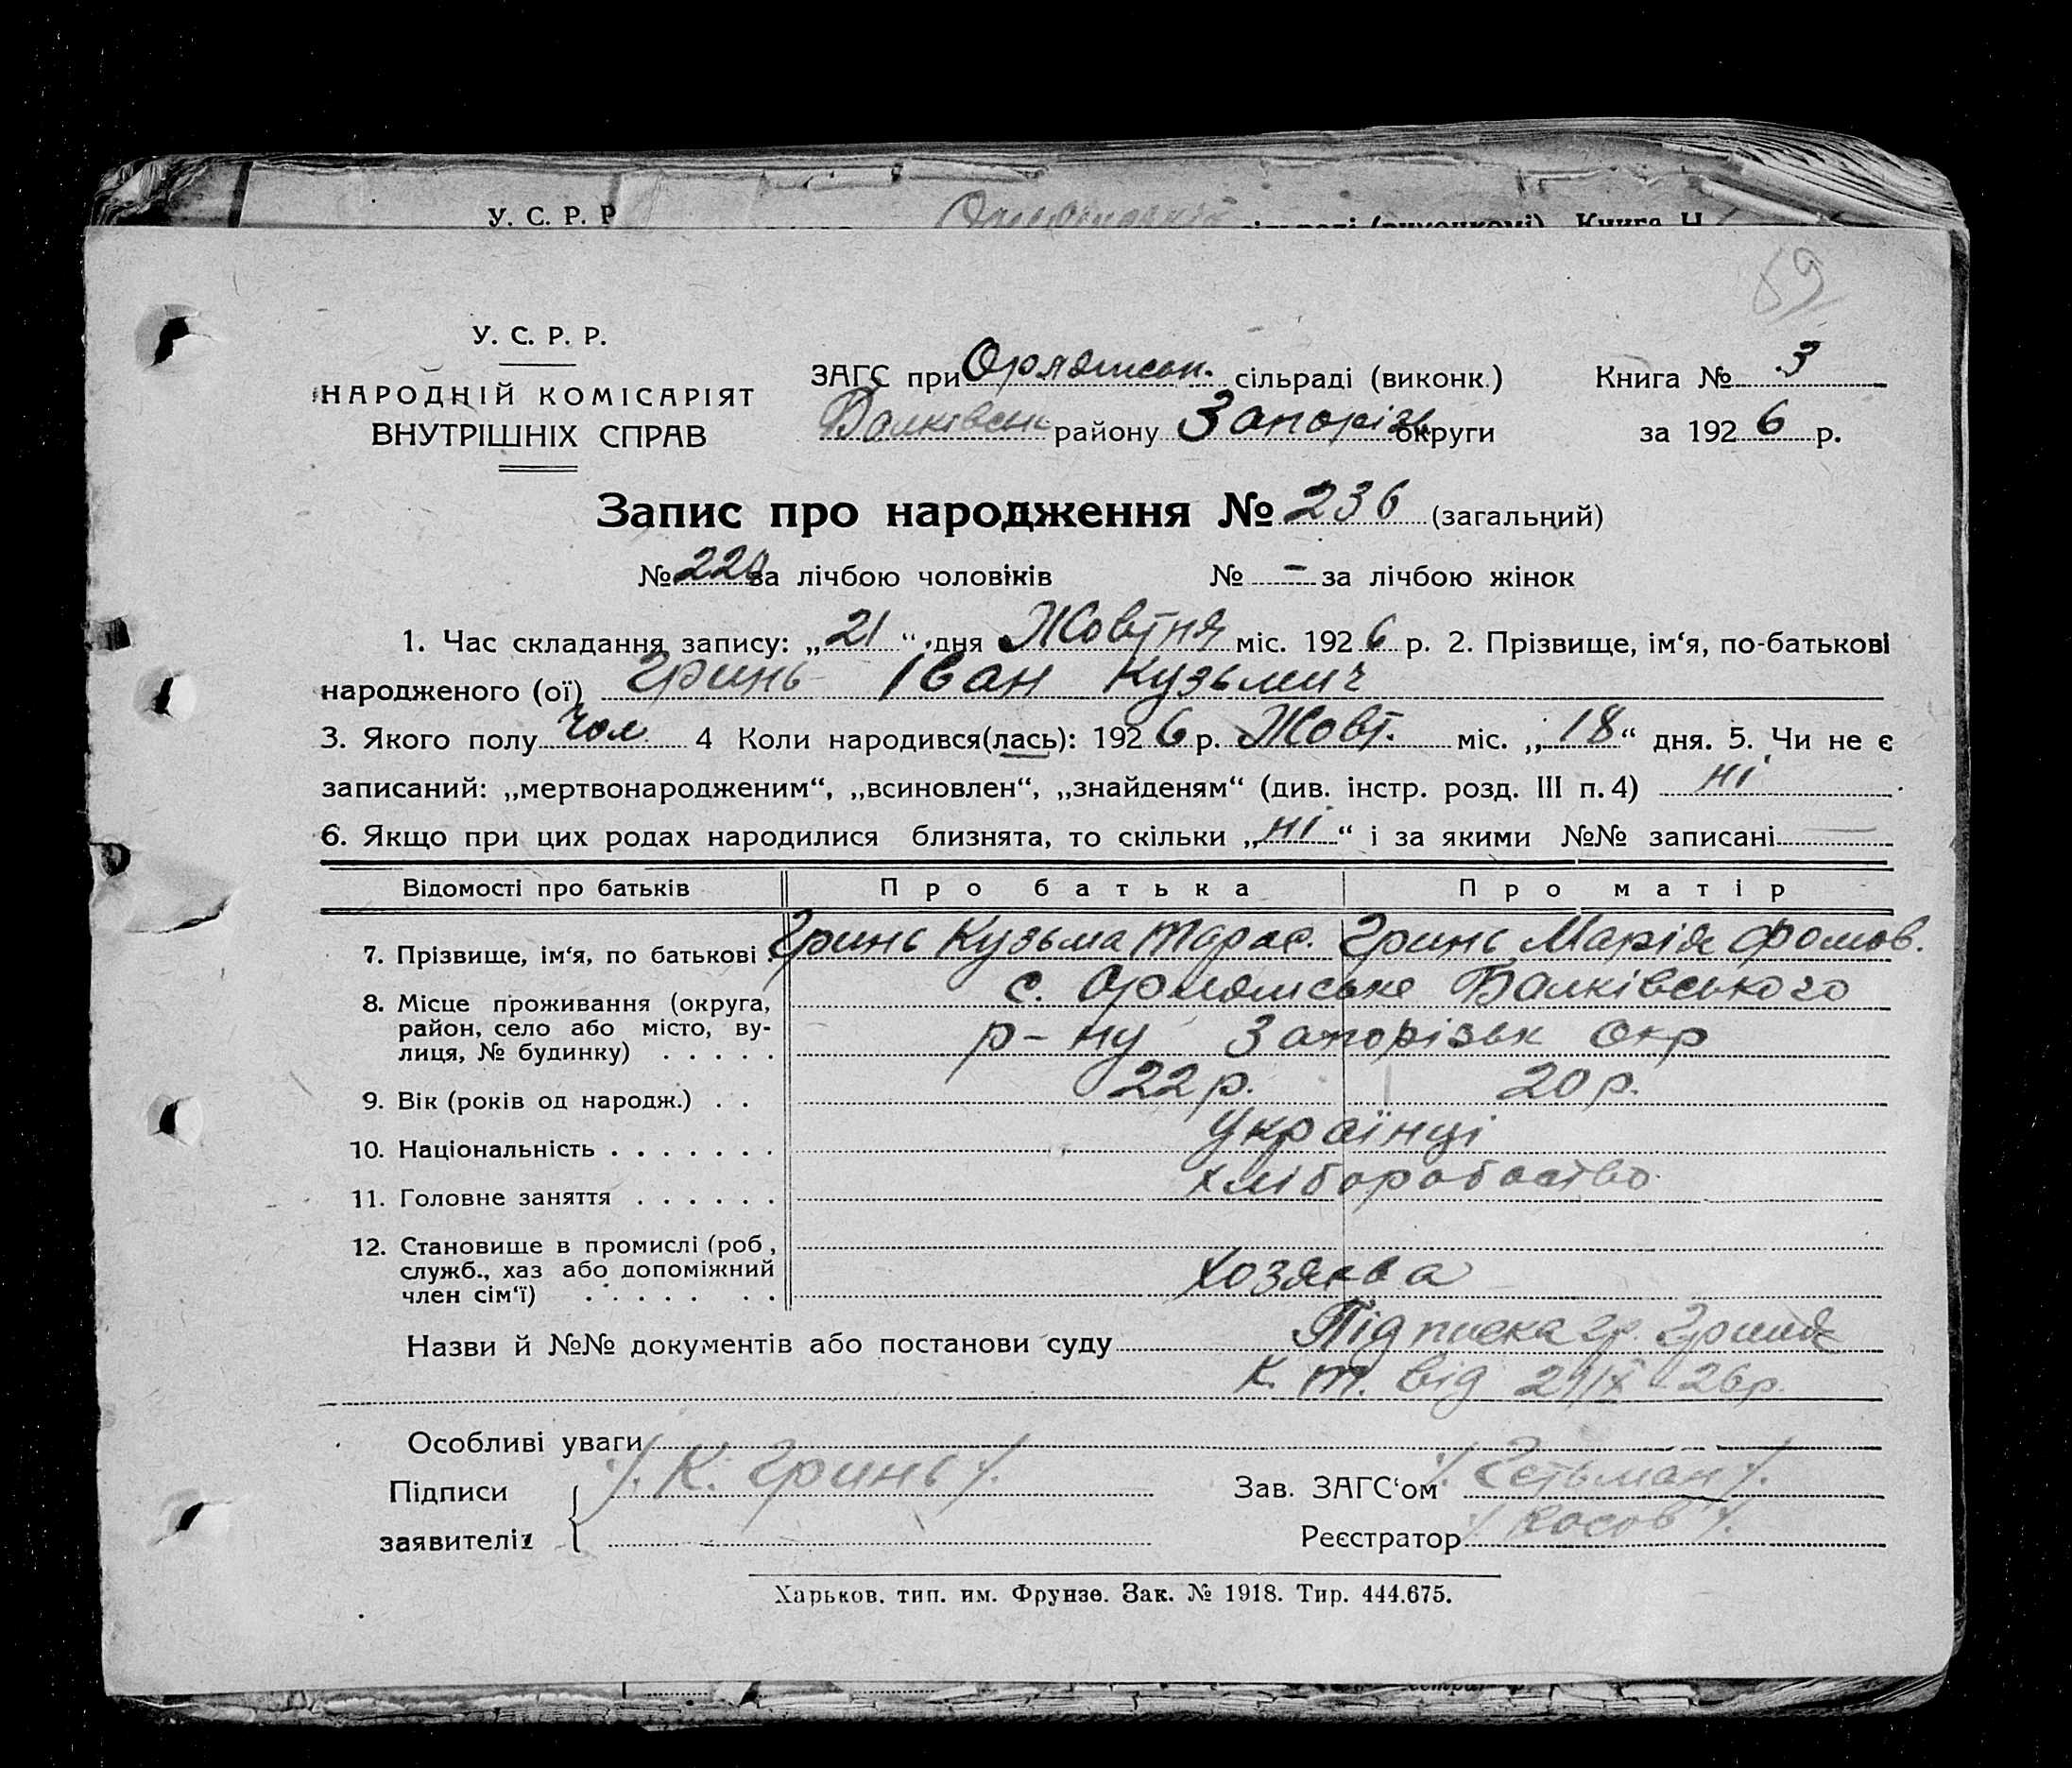 У. С. Р. Р
сільраді (виконкомі) Книга Н
69
У. С. Р. Р.
НАРОДНІЙ КОМІСАРІЯТ
ВНУТРІШНІХ СПРАВ
ЗАГС при Орлянськ. сільраді (виконк.) Книга № 3
Балківськ району Запорізь округи за 1926 р.
Запис про народження № 236 (загальний)
№ за лічбою чоловіків № - за лічбою жінок
1. Час складання запису: „21“ дня Жовтня міс. 1926 р. 2. Прізвище, ім‘я, по-батькові
народженого (ої) Гринь Іван Кузьмич
3. Якого полу Чол. 4 Коли народився(лась): 1926 р. Жовт. міс. „18“ дня. 5. Чи не є
записаний: „мертвонародженим“, „всиновлен“, „знайденям“ (див. інстр. розд. III п. 4) ні
6. Якщо при цих родах народилися близнята, то скільки „ні“ і за якими №№ записані —
Відомості про батьків Про батька Про матір
7. Прізвище, ім‘я, по батькові . Гринь Кузьма Тарас. Гринь Марія Фомов.
8. Місце проживання (округа, с. Орлянське Балківського
район, село або місто, ву-
лиця, № будинку) . . . . . р-ну Запорізьк окр
9. Вік (років од народж.) . . 22 р. 20 р.
10. Національність . . . . . . . Українці
11. Головне заняття . . . . . . хліборобство
12. Становище в промислі (роб,
служб., хаз або допоміжний Хозяєва
член сім‘ї) . . . . . . .
Назви й №№ документів або постанови суду Підписка гр. Гриня
К. Т. від 26 р.
Особливі уваги
Підписи /. К. Гринь /. Зав. ЗАГС‘ом /. Гетьман /.
заявителів Реєстратор /. Косов /.
Харьков. тип. им. Фрунзе. Зак. № 1918. Тир. 444.675.